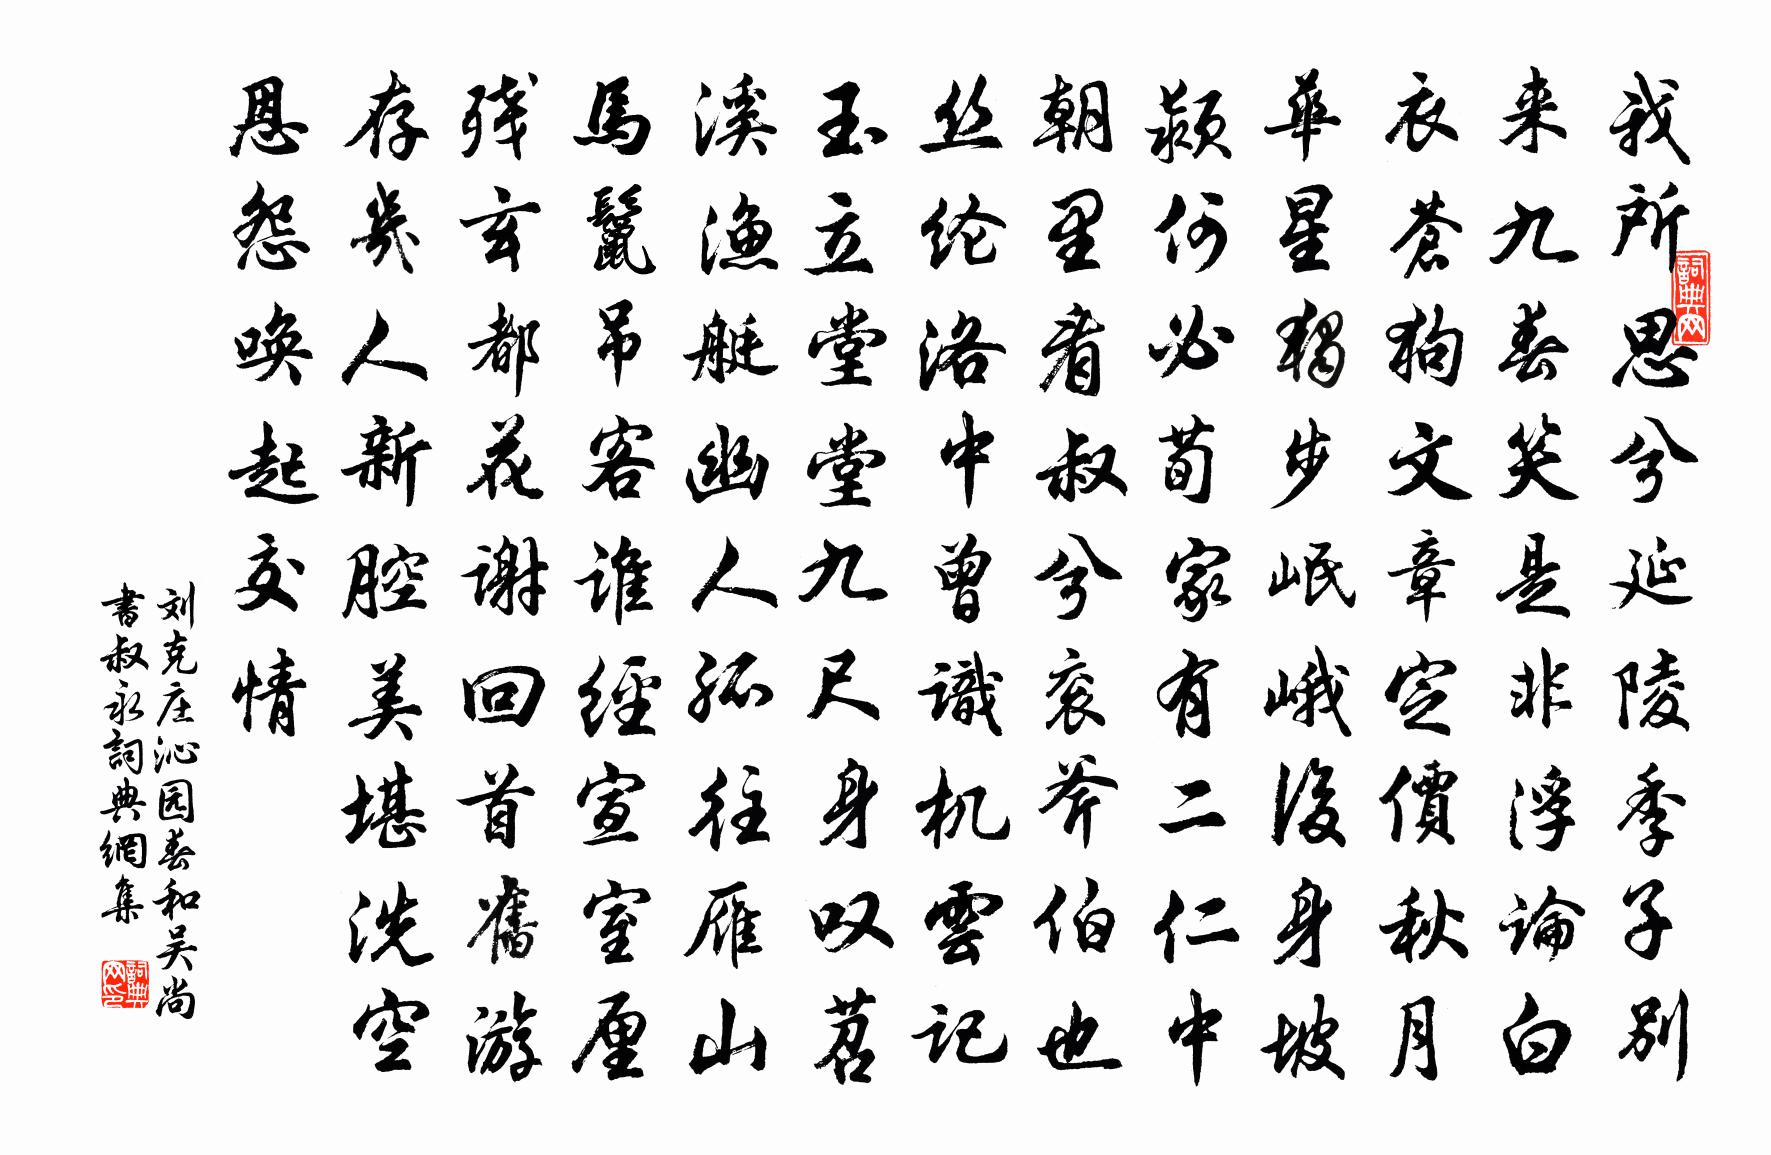 我所思兮延陵季子别
来九春笑是非浮論白
衣蒼狗文章定價秋月
華星獨步岷峨後身坡
颍何必荀家有二仁中
朝里看叔兮衮斧伯也
丝纶洛中曾識机雲记
玉立堂堂九尺身叹苕
溪渔艇幽人孤往雁山
馬鬣吊客谁經宣室厘
残玄都花謝回首舊游
存幾人新腔美堪洗空
恩怨唤起交情
刘克庄沁园春和吴尚
書叔永詞典網集
詞典网
詞典网印